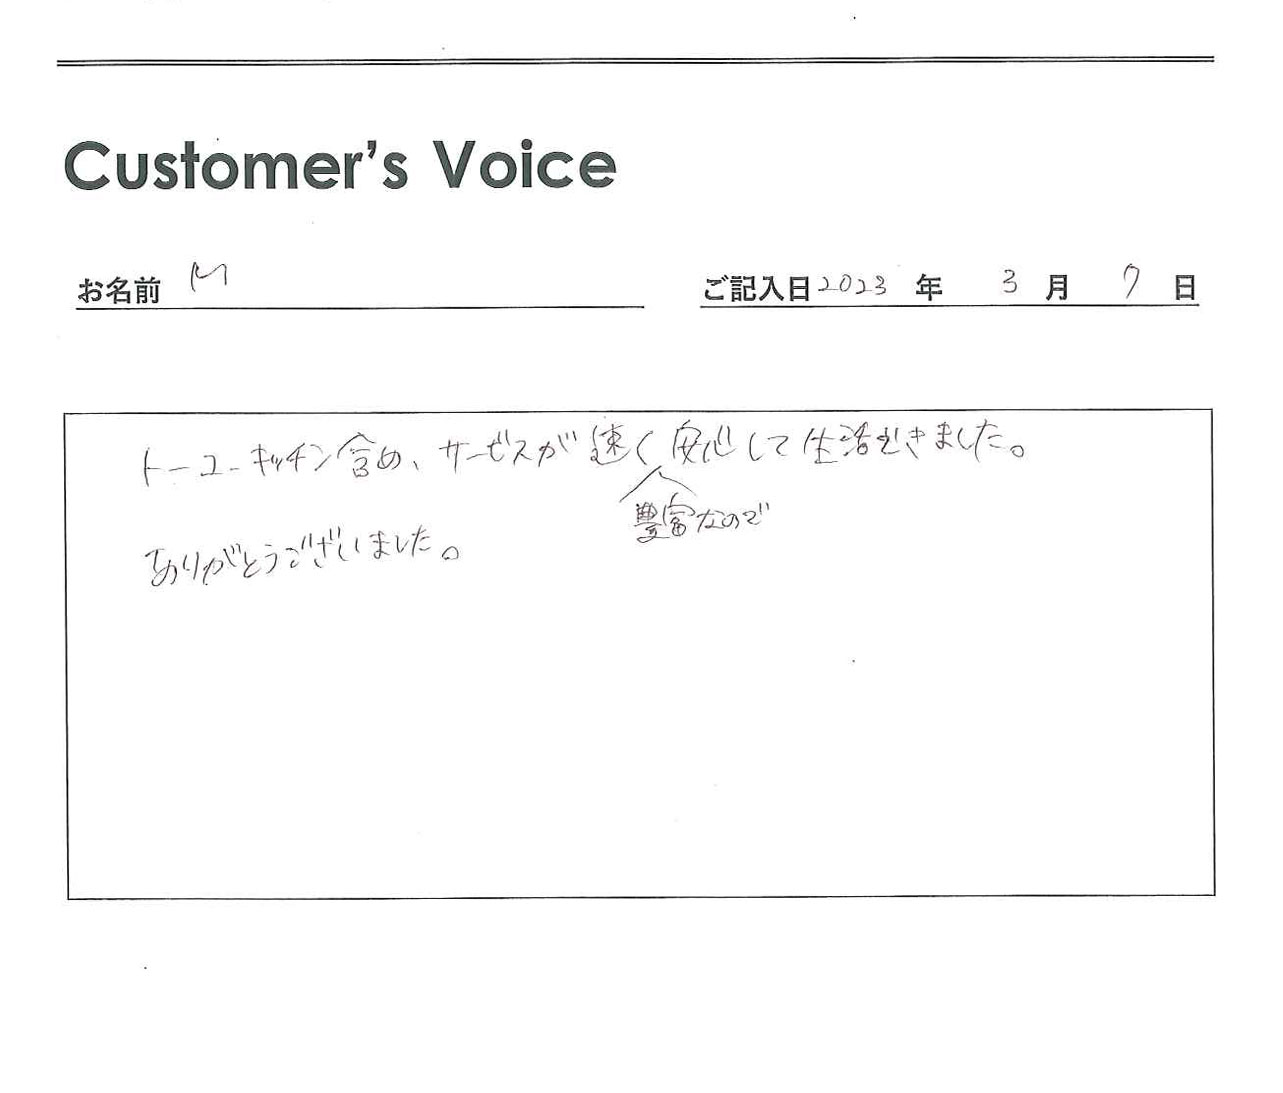 Customer's Voice
お名前 M
ご記入日 2023 年 3 月 7 日
トーユーキッチン含め、サービスが速く安心して生活できました。
豊富なので
ありがとうございました。